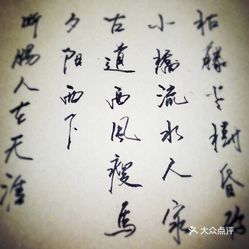 枯藤老樹昏鸦
小橋流水人家
古道西風瘦馬
夕阳西下
断腸人在天涯
大众点评